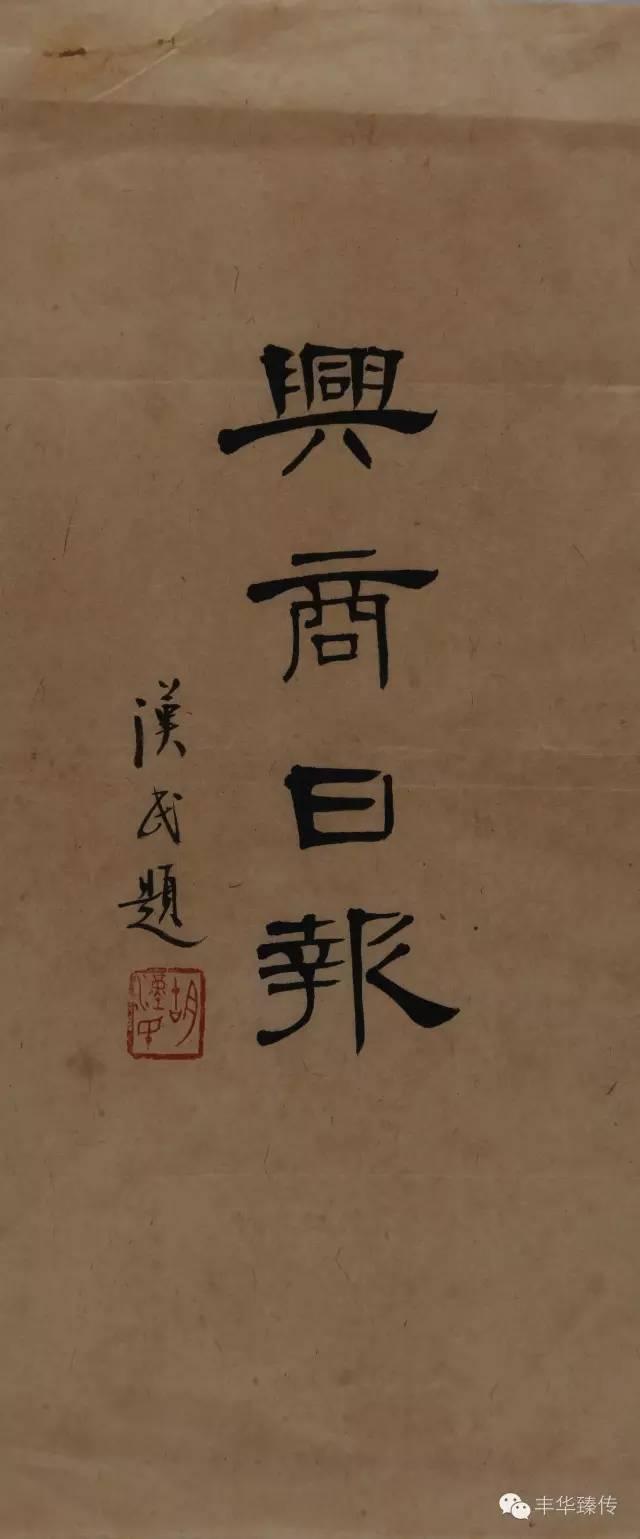 興商日報
漢民題
胡漢民
丰华臻传